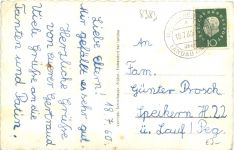 Liebe Eltern! 18.7.60.
Mir gefällt es sehr gut.
Herzliche Grüße
von eurer Gertraud
Viele Grüße an die
Tanten und Paul
An
Fam.
Günter Prosch
Speikern H. 22
ü. Lauf / Peg.
10